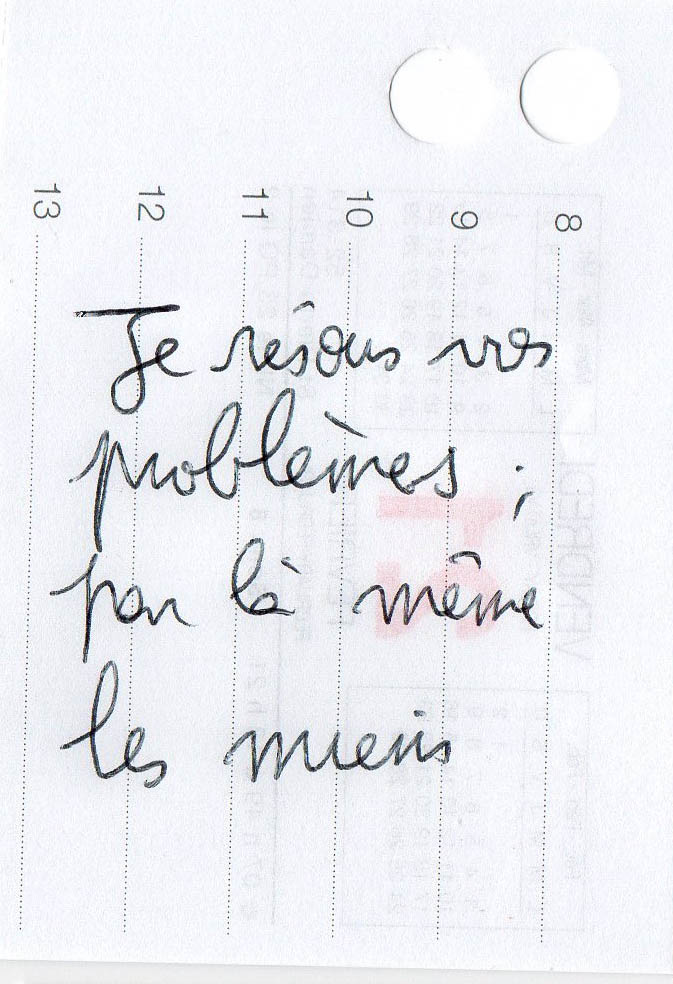 Je résous vos
problèmes ;
par là même
les miens
8
9
10
11
12
13
VENDREDI